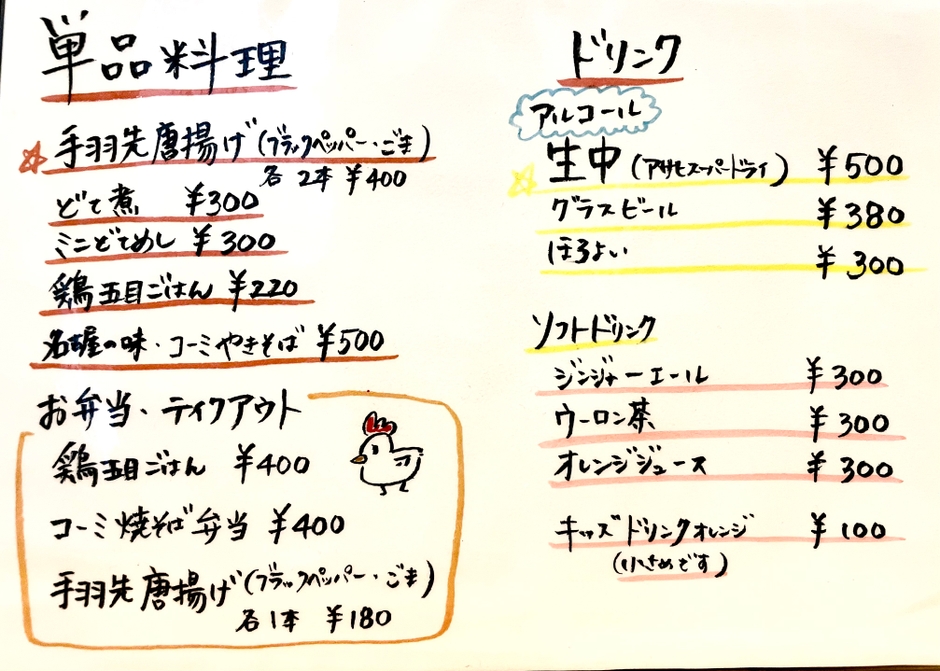 単品料理
手羽先唐揚げ(ブラックペッパー・ごま)
各2本 ¥400
どて煮 ¥300
ミニどてめし ¥300
鶏五目ごはん ¥220
名古屋の味・コーミやきそば ¥500
お弁当・テイクアウト
鶏五目ごはん ¥400
コーミ焼そば弁当 ¥400
手羽先唐揚げ(ブラックペッパー・ごま)
各1本 ¥180
ドリンク
アルコール
生中(アサヒスーパードライ) ¥500
グラスビール ¥380
ほろよい ¥300
ソフトドリンク
ジンジャーエール ¥300
ウーロン茶 ¥300
オレンジジュース ¥300
キッズドリンクオレンジ ¥100
(小さめです)